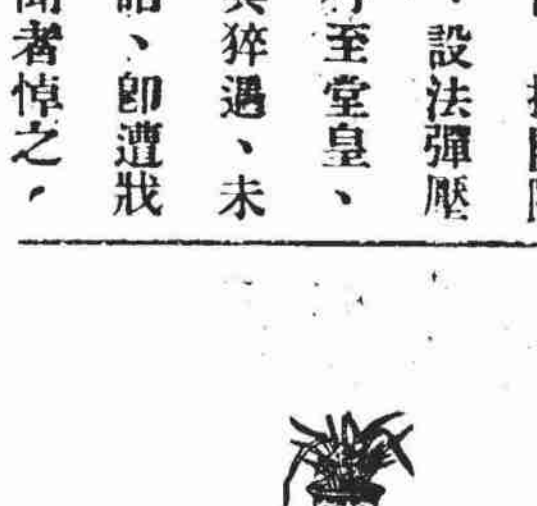 、設法彈壓
至堂皇、
猝遇、未
詰、卽遭戕
聞者悼之、